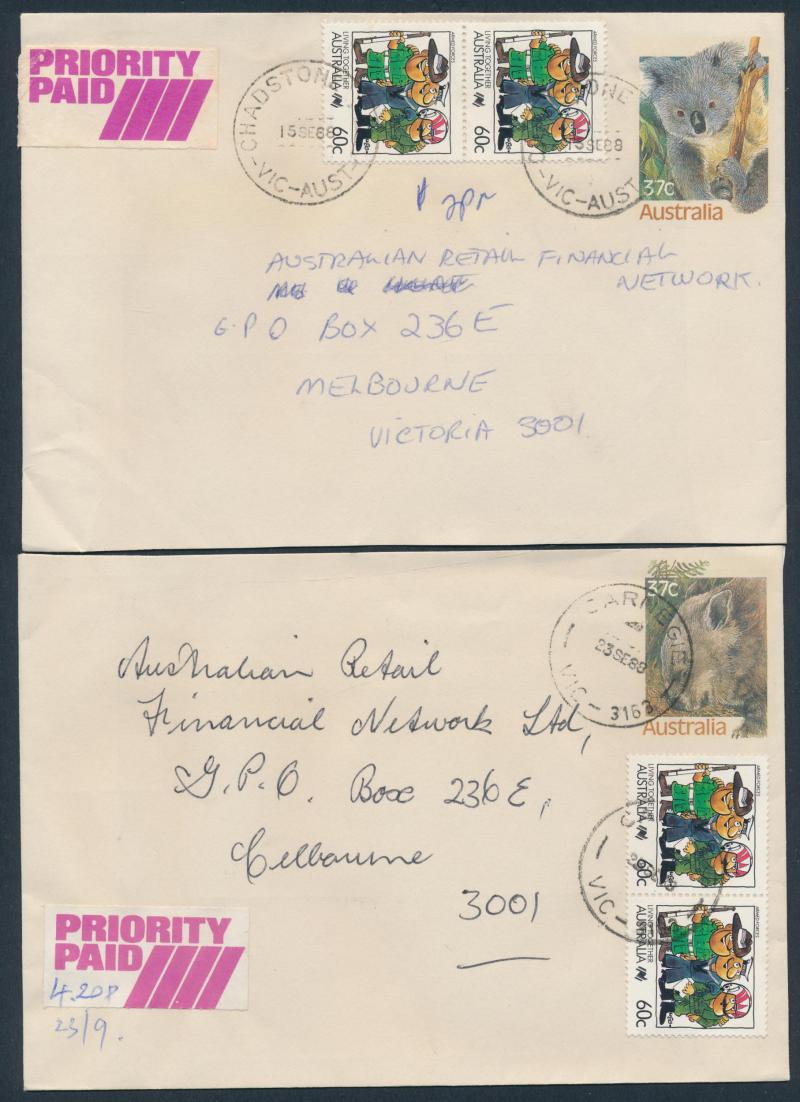 PRIORITY
PAID
CHADSTONE
15SE88
VIC-AUST
ARMED FORCES
LIVING TOGETHER
AUSTRALIA
60c
ARMED FORCES
LIVING TOGETHER
AUSTRALIA
60c
ONE
15SE88
VIC-AUST
37c
Australia
2pm
AUSTRALIAN RETAIL FINANCIAL
NETWORK.
G.P O BOX 236E
MELBOURNE
VICTORIA 3001
CARNEGIE
23SE88
VIC- 3163
37c
Australia
Australian Retail
Financial Network Ltd,
G.P.O. Box 236E,
Melbourne
3001
ARMED FORCES
LIVING TOGETHER
AUSTRALIA
60c
VIC-
ARMED FORCES
LIVING TOGETHER
AUSTRALIA
60c
PRIORITY
PAID
4.20p
23/9.